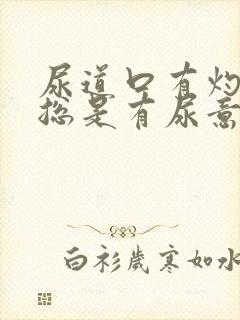 尿道口有灼
总是有尿意
白衫岁寒如水